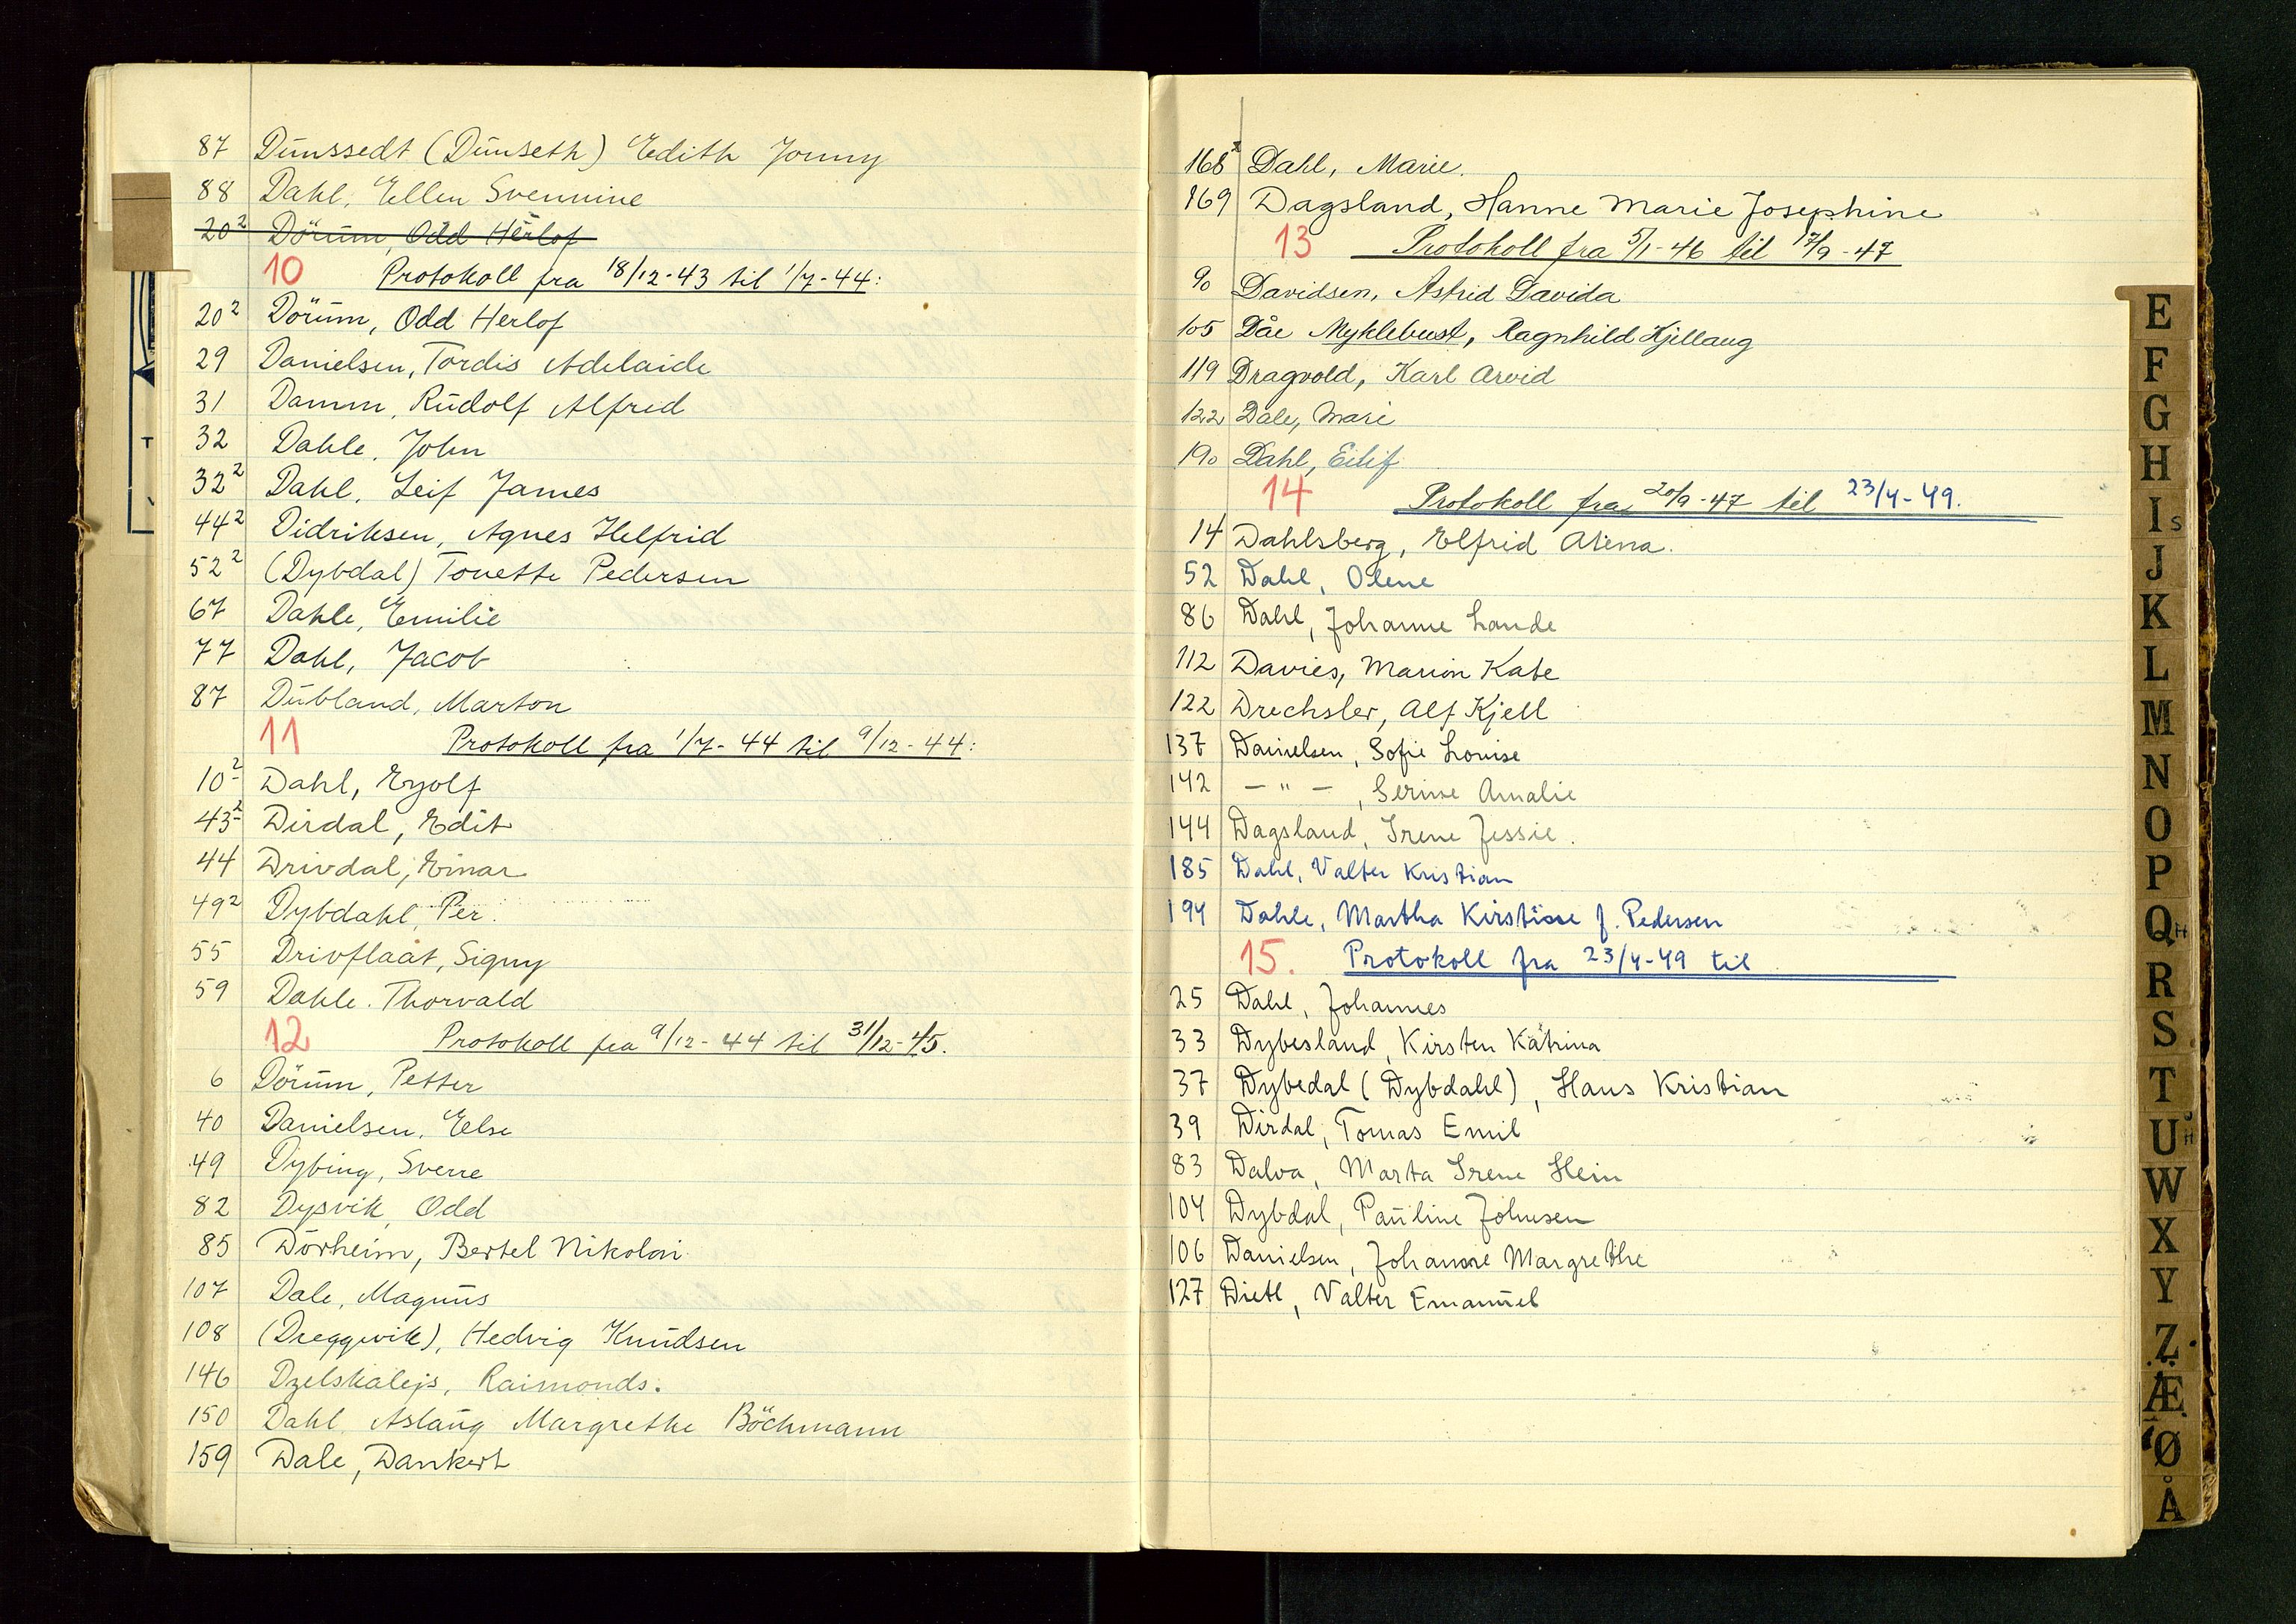 87 Dunssedt (Dunseth) Edith Jonny
88 Dahl, Ellen Svennine
20² Dörum, Odd Herlof
10 Protokoll fra 18/12-43 til 1/7-44:
20² Dörum, Odd Herlof
29 Danielsen, Tordis Adelaide
31 Damm, Rudolf Alfred
32 Dahle, John
32² Dahl, Leif James
44² Didriksen, Agnes Helfrid
52² (Dybdal) Tonette Pedersen
67 Dahle, Emilie
77 Dahl, Jacob
87 Dubland, Marton
11 Protokoll fra 1/7-44 til 9/12-44:
10² Dahl, Eyolf
43² Dirdal, Edit
44 Drivdal, Einar
49² Dybdahl, Per.
55 Drivflaat, Signy
59 Dahle. Thorvald
12 Protokoll fra 9/12-44 til 31/12-45.
6 Dörum, Petter
40 Danielsen, Else
49 Dybing, Sverre
82 Dysvik, Odd
85 Dörheim, Bertel Nikolai
107 Dale, Magnus
108 (Dreggvik), Hedvig Knudsen
146 Dzelskalejs, Raimonds.
150 Dahl Aslaug Margrethe Böchmann
159 Dale, Dankert
168 x Dahl, Marie.
169 Dagsland, Hanne Marie Josephine
13 Protokoll fra 5/1-46 til 17/9-47
90 Davidsen, Astrid Davida
105 Dåe Myklebust, Ragnhild Kjellaug
119 Dragvold, Karl Arvid
122 Dale, Mari
190 Dahl, Eilif
14 Protokoll fra 20/9-47 til 23/4-49.
14 Dahlsberg, Elfrid Alena.
52 Dahl, Olene
86 Dahl, Johanne Lande
112 Davies, Marion Kate
122 Drechsler, Alf Kjell
137 Danielsen, Sofie Lovise
142 — " — , Serine Amalie
144 Dagsland, Irene Jessie.
185 Dahl, Valter Kristian
194 Dahle, Martha Kirstine f. Pedersen
15. Protokoll fra 23/4-49 til
25 Dahl, Johannes
33 Dybesland, Kirsten Katrina
37 Dybedal (Dybdahl), Hans Kristian
39 Dirdal, Tomas Emil
83 Dalva, Marta Irene Hein
104 Dybdal, Pauline Johnsen
106 Danielsen, Johanne Margrethe
127 Dietl, Valter Emanuel
E
F
G
H
I s
J
K
L
M
N
O
P
Q H
R
S
T
U
W
X
Y
Z
Æ
Ø
Å